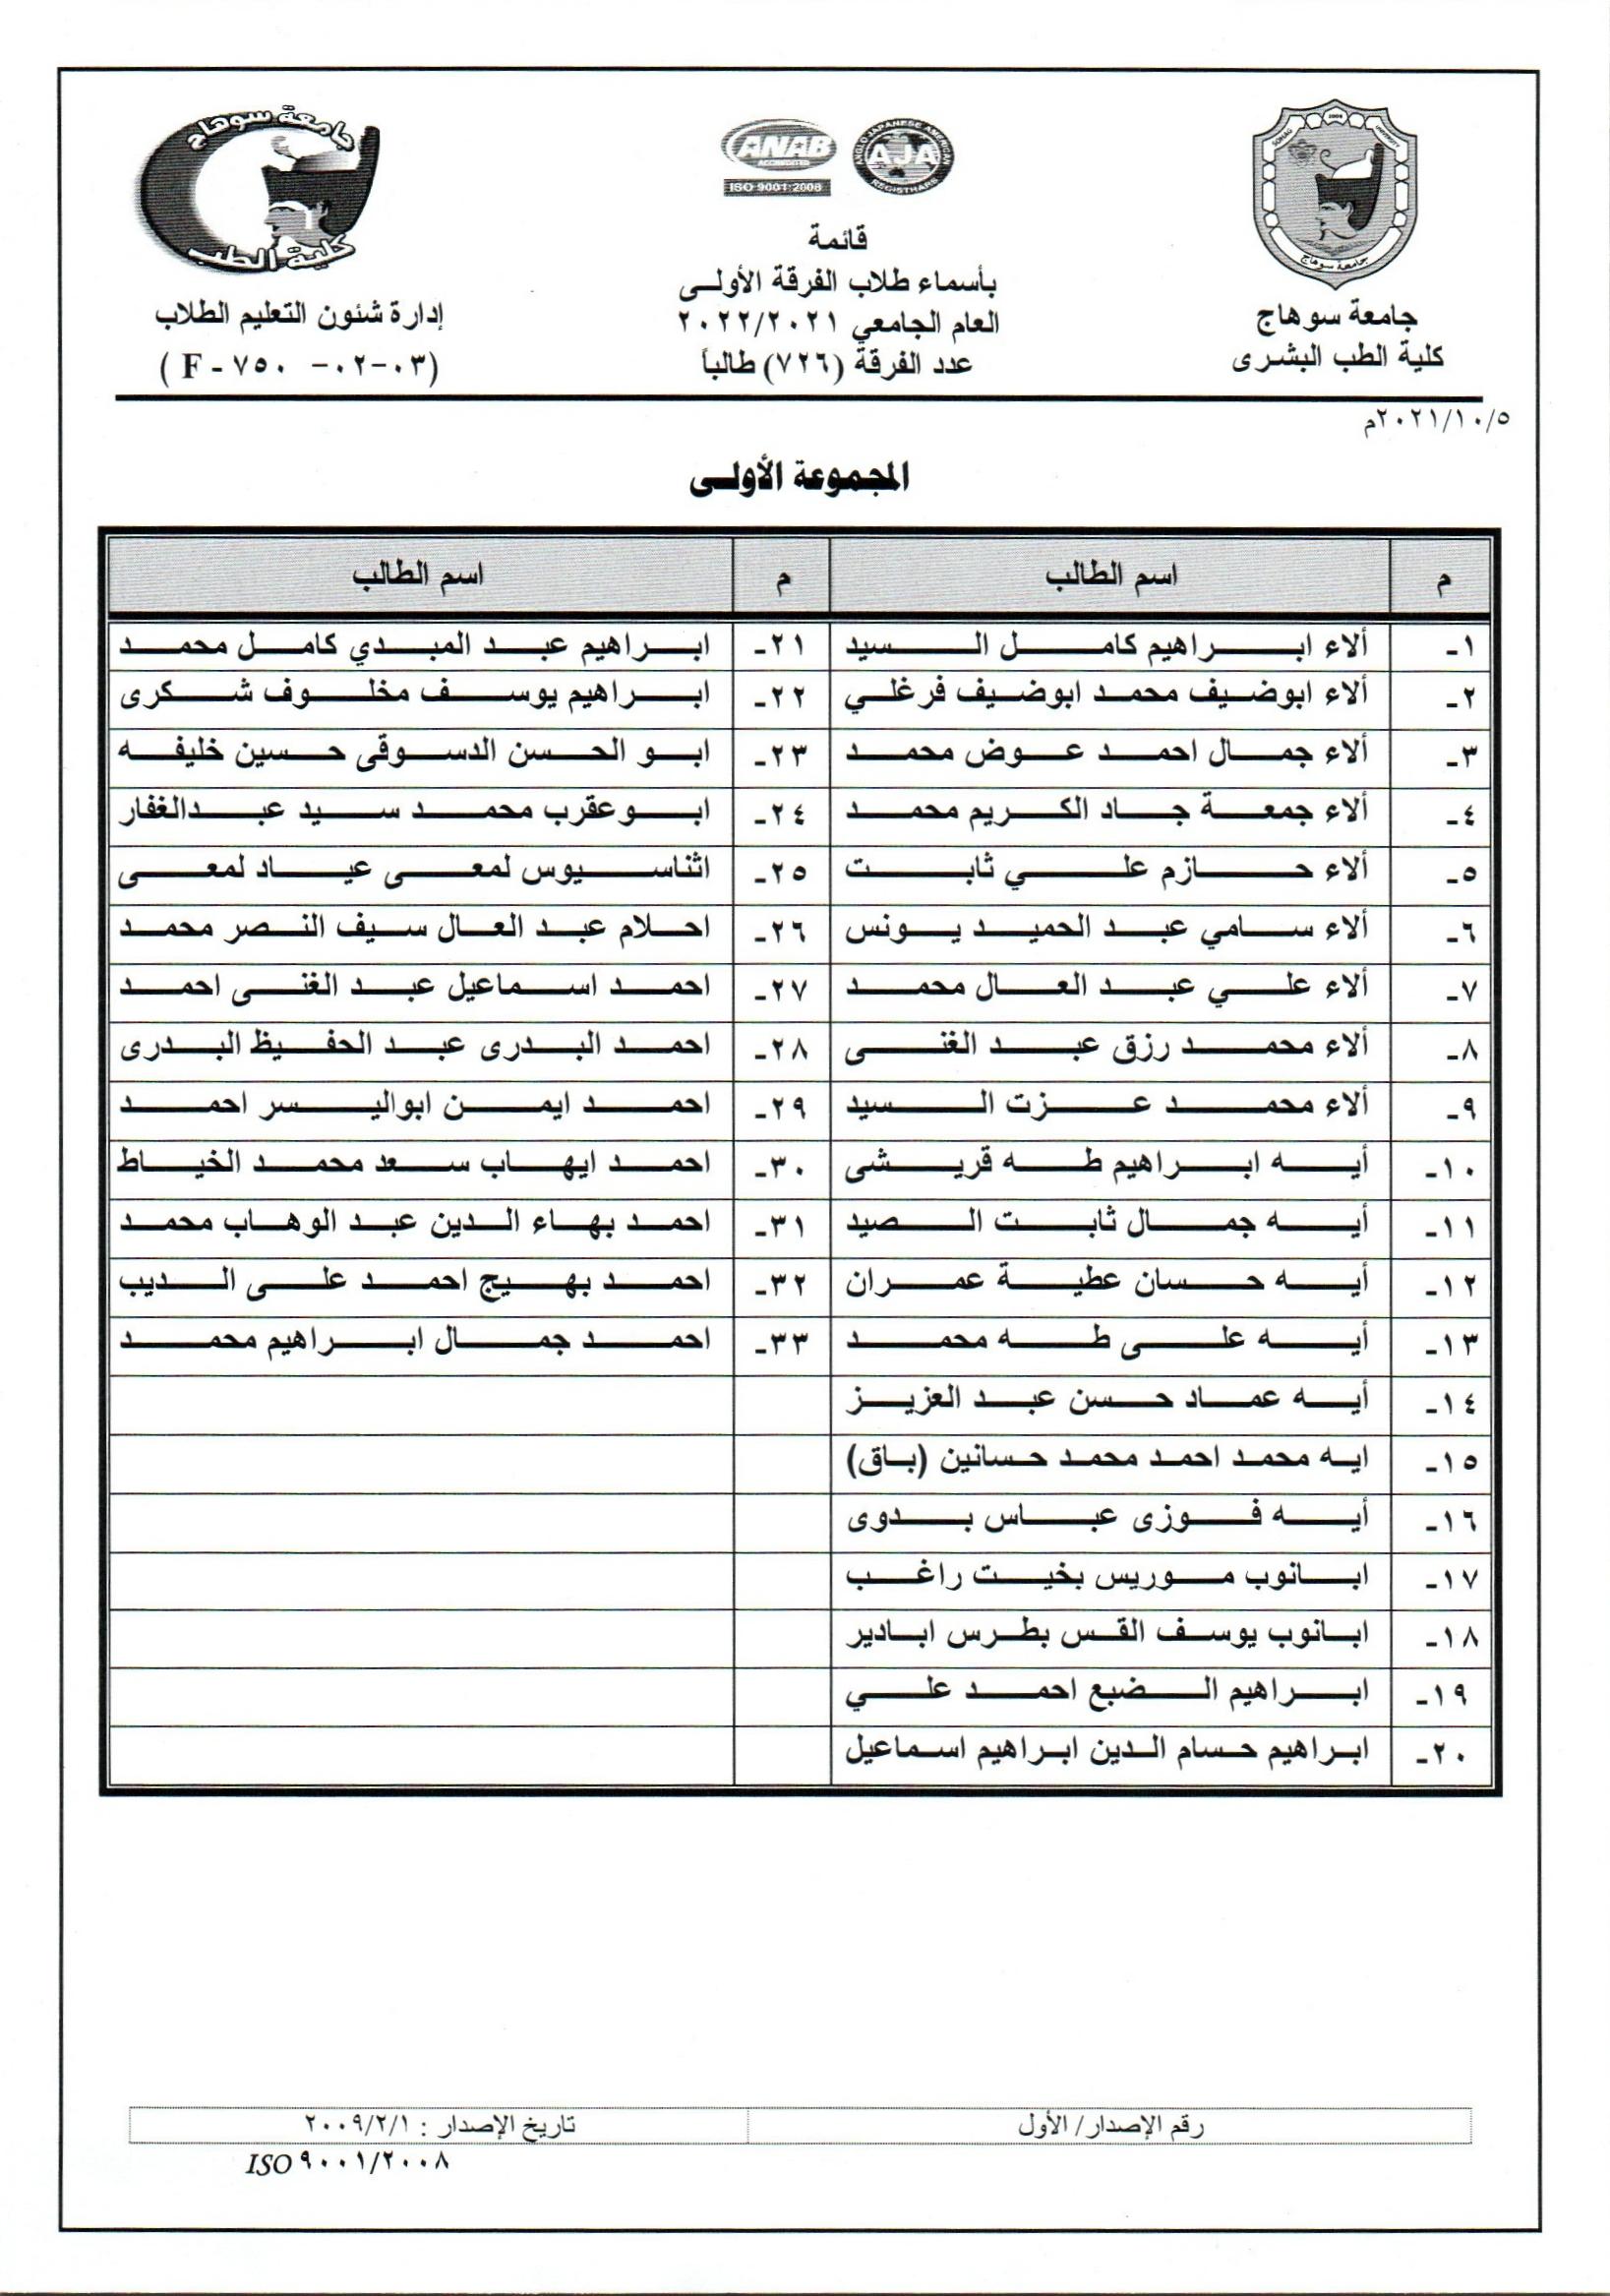 جامعة سوهاج
كلية الطب البشرى
ANAB
ACCREDITED
ISO 9001:2008
AJA
ANGLO JAPANESE AMERICAN
REGISTRARS
قائمة
بأسماء طلاب الفرقة الأولى
العام الجامعي ٢٠٢٢/٢٠٢١
عدد الفرقة (٧٢٦) طالباً
جامعة سوهاج
كلية الطب
إدارة شئون التعليم الطلاب
(F - ٧٥٠ -٠٢-٠٣)
٢٠٢١/١٠/٥م
المجموعة الأولى
م اسم الطالب م اسم الطالب
١- ألاء ابراهيم كامل السيد ٢١- ابراهيم عبد المبدي كامل محمد
٢- ألاء ابوضيف محمد ابوضيف فرغلي ٢٢- ابراهيم يوسف مخلوف شكرى
٣- ألاء جمال احمد عوض محمد ٢٣- ابو الحسن الدسوقى حسين خليفه
٤- ألاء جمعة جاد الكريم محمد ٢٤- ابوعقرب محمد سيد عبدالغفار
٥- ألاء حازم علي ثابت ٢٥- اثناسيوس لمعى عياد لمعى
٦- ألاء سامي عبد الحميد يونس ٢٦- احلام عبد العال سيف النصر محمد
٧- ألاء علي عبد العال محمد ٢٧- احمد اسماعيل عبد الغنى احمد
٨- ألاء محمد رزق عبد الغنى ٢٨- احمد البدرى عبد الحفيظ البدرى
٩- ألاء محمد عزت السيد ٢٩- احمد ايمن ابواليسر احمد
١٠- أيه ابراهيم طه قريشى ٣٠- احمد ايهاب سعد محمد الخياط
١١- أيه جمال ثابت الصيد ٣١- احمد بهاء الدين عبد الوهاب محمد
١٢- أيه حسان عطية عمران ٣٢- احمد بهيج احمد على الديب
١٣- أيه على طه محمد ٣٣- احمد جمال ابراهيم محمد
١٤- أيه عماد حسن عبد العزيز
١٥- ايه محمد احمد محمد حسانين (باق)
١٦- أيه فوزى عباس بدوى
١٧- ابانوب موريس بخيت راغب
١٨- ابانوب يوسف القس بطرس ابادير
١٩- ابراهيم الضبع احمد علي
٢٠- ابراهيم حسام الدين ابراهيم اسماعيل
رقم الإصدار/ الأول تاريخ الإصدار : ٢٠٠٩/٢/١
ISO ٩٠٠١/٢٠٠٨